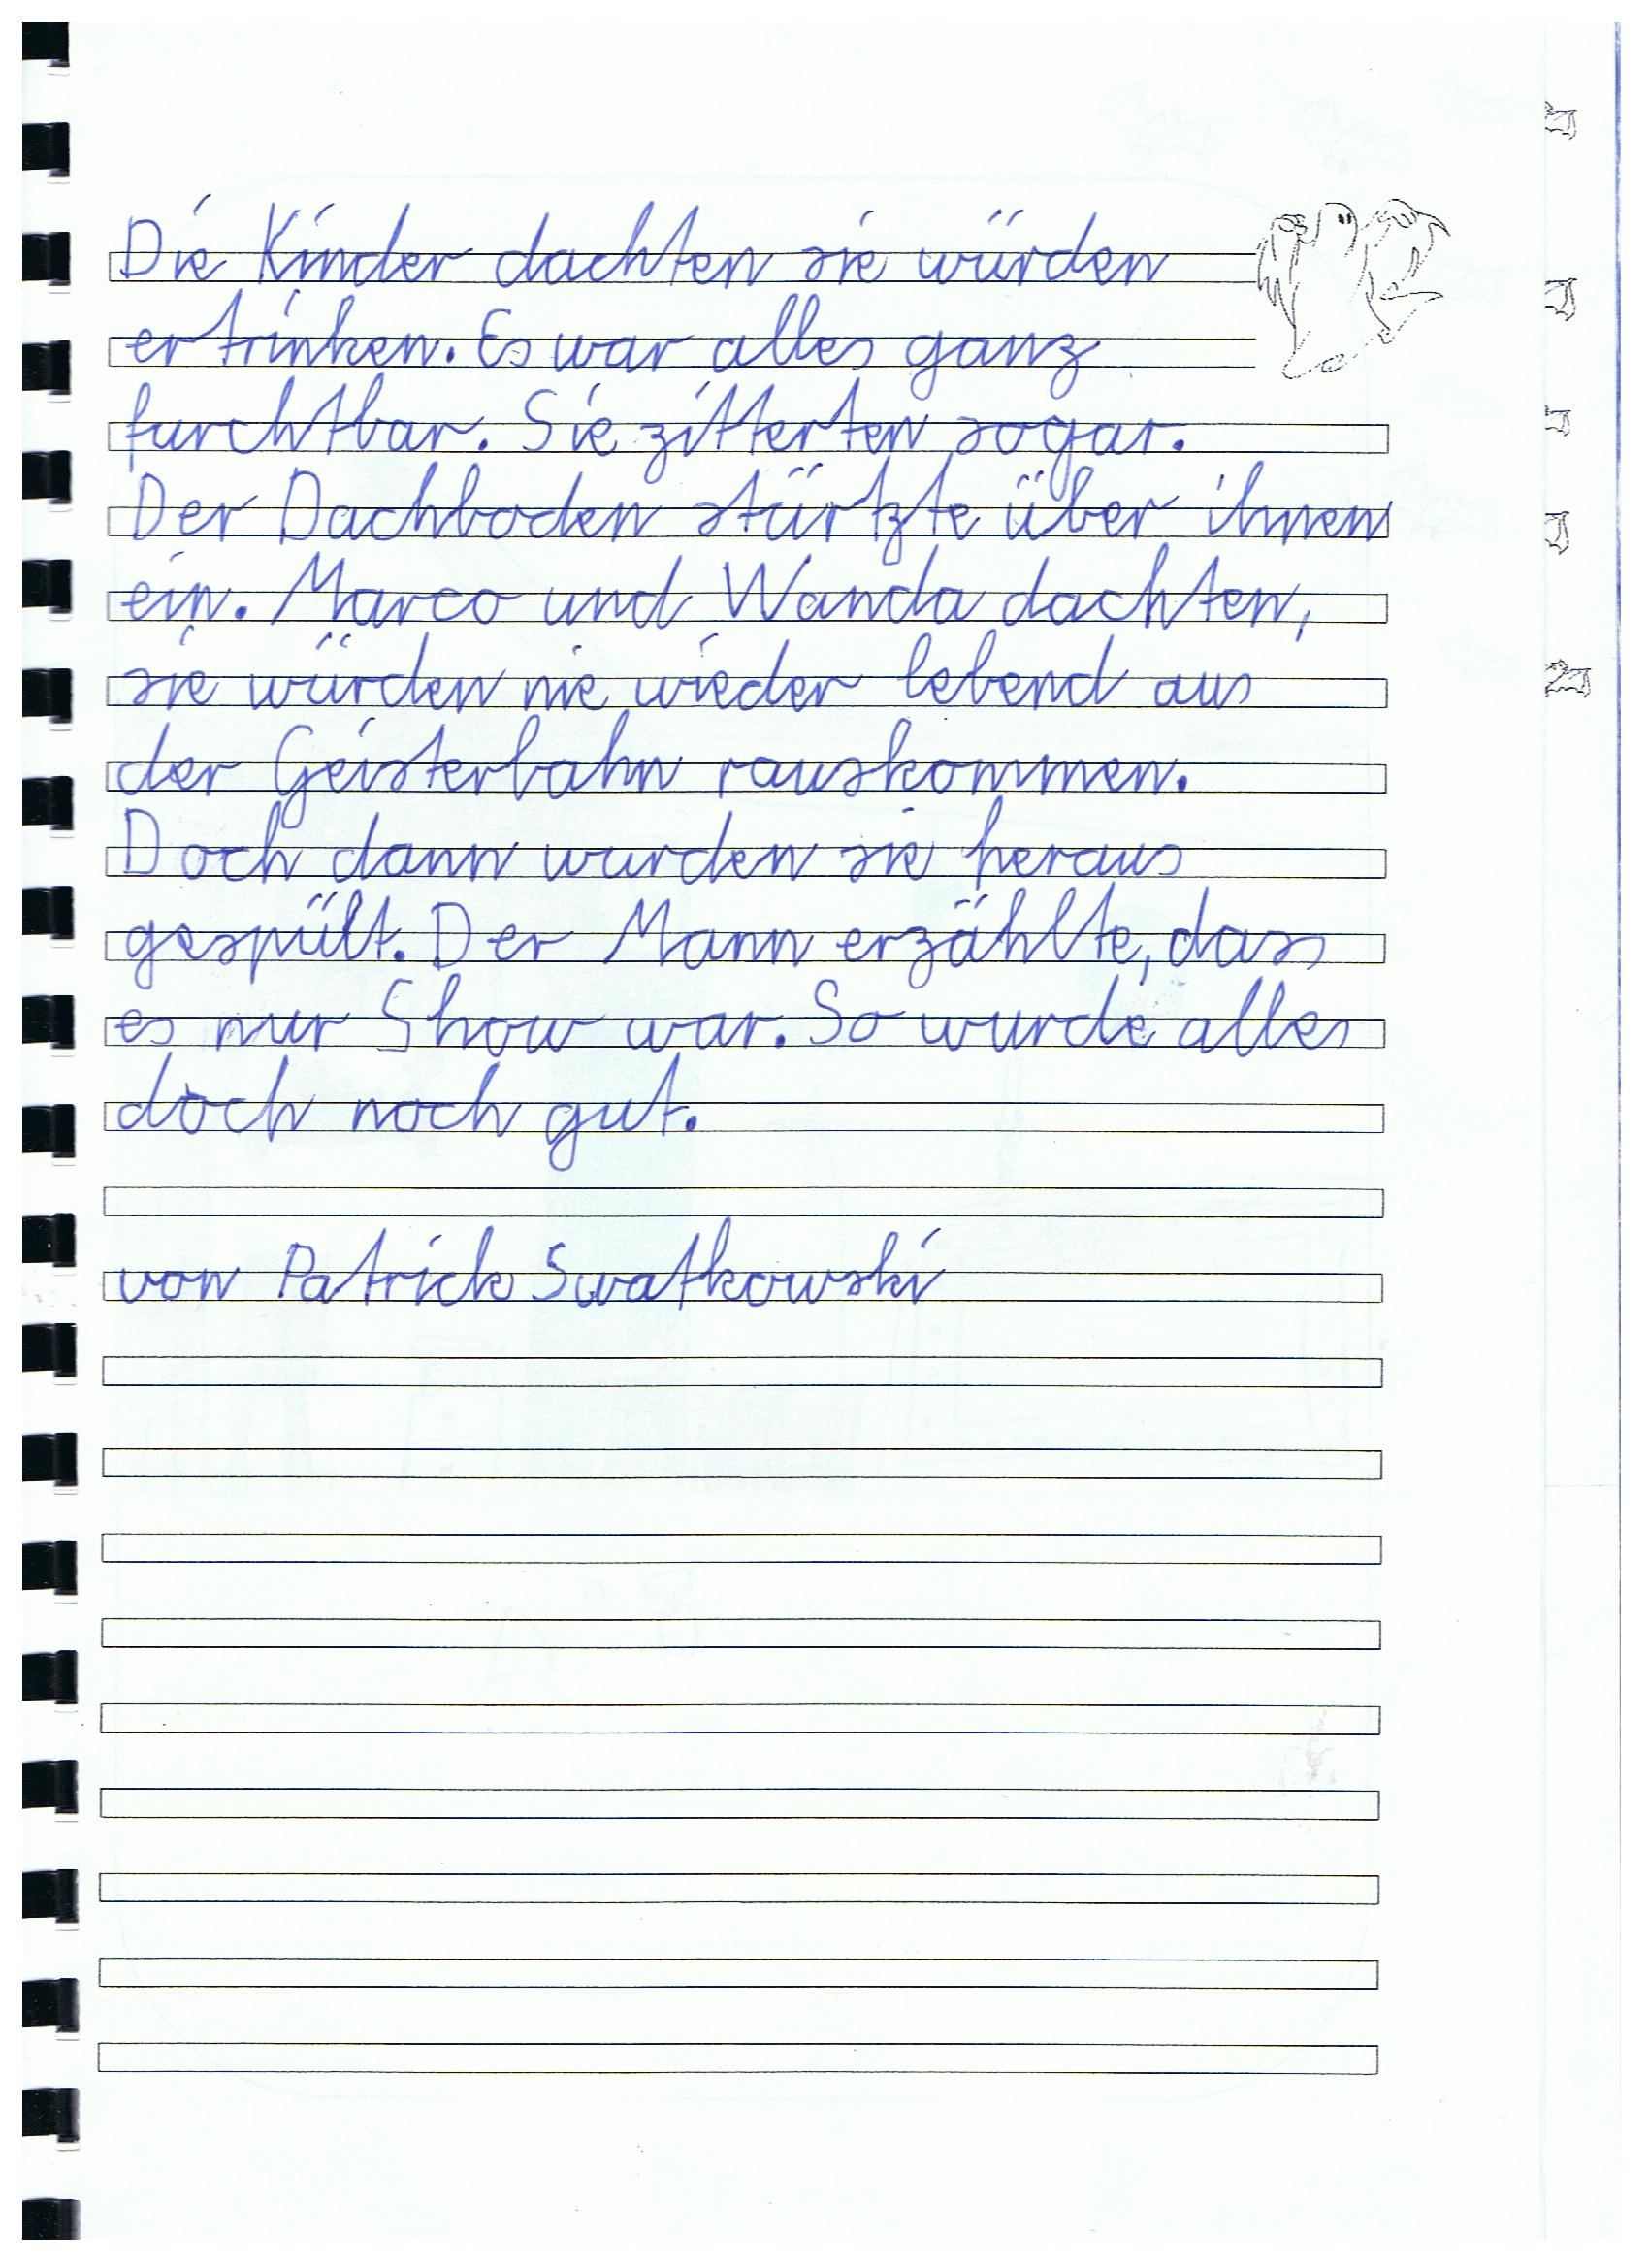 Die Kinder dachten sie würden
ertrinken. Es war alles ganz
furchtbar. Sie zitterten sogar.
Der Dachboden stürtzte über ihnen
ein. Marco und Wanda dachten,
sie würden nie wieder lebend aus
der Geisterbahn rauskommen.
Doch dann wurden sie heraus
gespült. Der Mann erzählte, dass
es nur Show war. So wurde alles
doch noch gut.
von Patrick Swatkowski